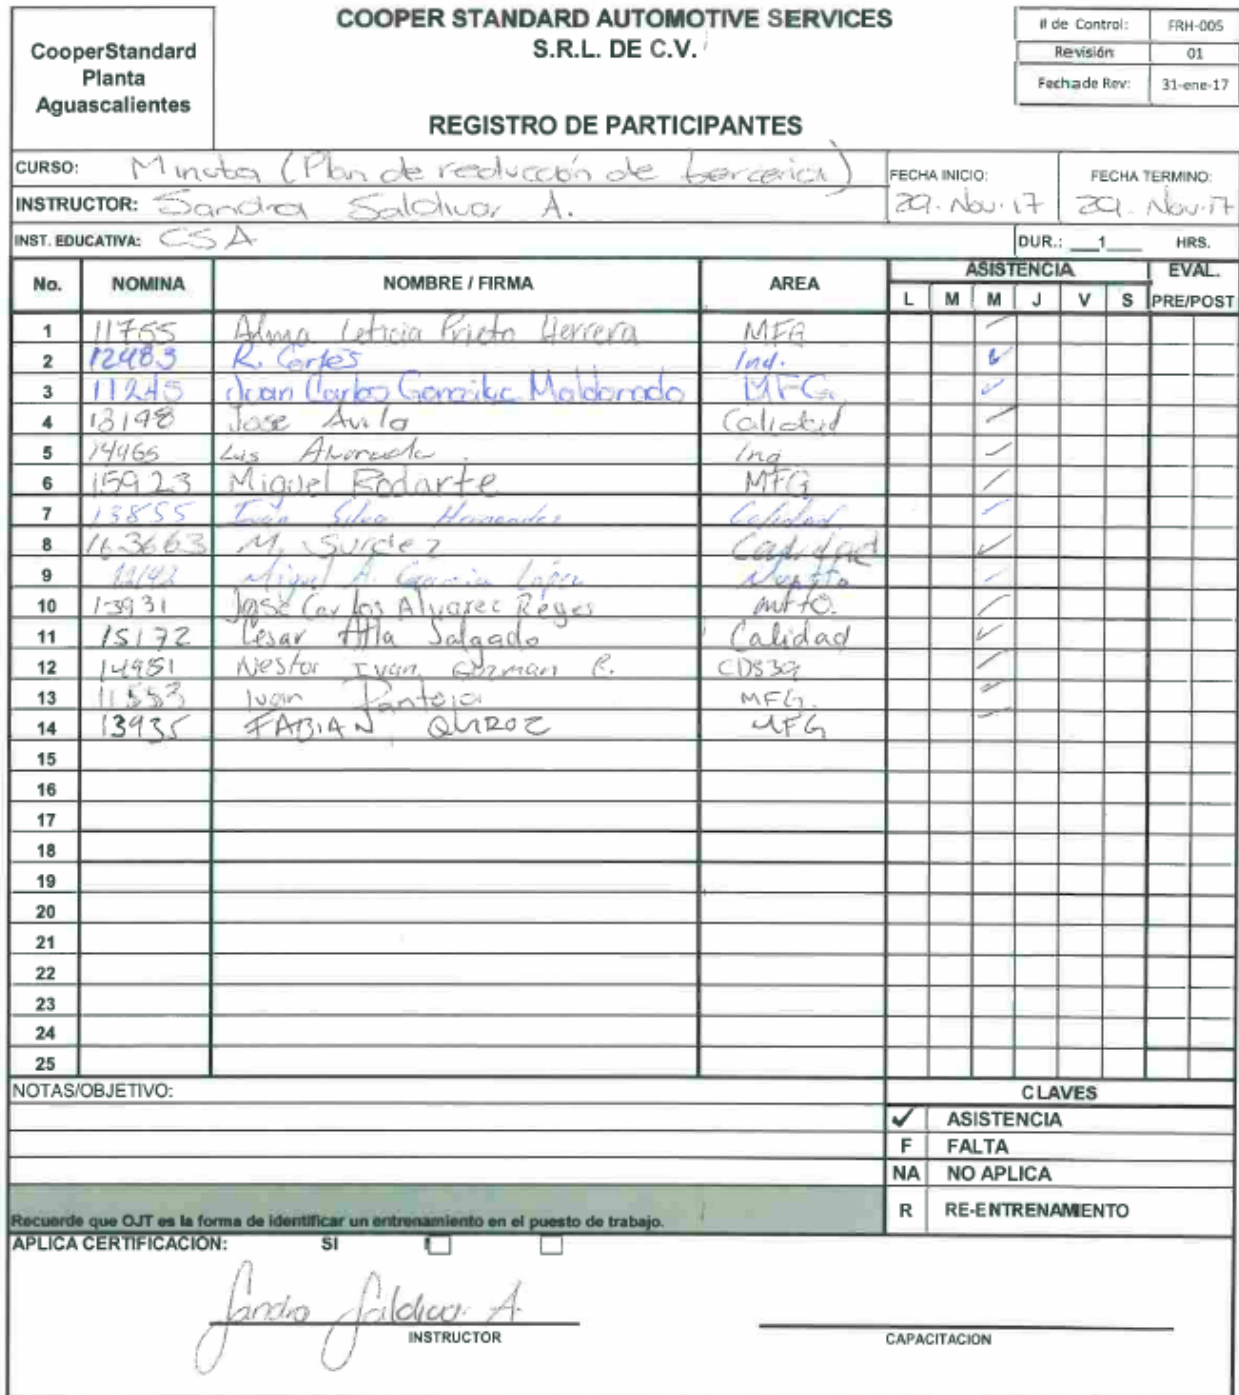 CooperStandard
Planta
Aguascalientes
COOPER STANDARD AUTOMOTIVE SERVICES
S.R.L. DE C.V.
REGISTRO DE PARTICIPANTES
# de Control: FRH-005
Revisión 01
Fecha de Rev: 31-ene-17
CURSO: Minuta (Plan de reducción de tercería)
FECHA INICIO: 29.Nov.17
FECHA TERMINO: 29.Nov.17
INSTRUCTOR: Sandra Saldivar A.
INST. EDUCATIVA: CSA
DUR.: 1 HRS.
No. NOMINA NOMBRE / FIRMA AREA ASISTENCIA EVAL.
L M M J V S PRE/POST
1 11755 Alma Leticia Prieto Herrera MFG
2 12483 R. Cortes Ind. ✓
3 11245 Juan Carlos Maldonado MFG ✓
4 13198 Jose Avila Calidad
5 14465 Luis Ing
6 15923 Miguel Rodarte MFG
7 13855 Iván Silva Hernandez Calidad
8 163663 M. Calidad ✓
9 Miguel A. Garcia López
10 13931 José Carlos Alvarez Reyes mtto.
11 15172 Cesar Salgado Calidad ✓
12 14951 Nestor Ivan Guzman R.
13 11553 Ivan Pantoja MFG.
14 13935 FABIAN QUIROZ MFG
15
16
17
18
19
20
21
22
23
24
25
NOTAS/OBJETIVO:
CLAVES
✓ ASISTENCIA
F FALTA
NA NO APLICA
R RE-ENTRENAMIENTO
Recuerde que OJT es la forma de identificar un entrenamiento en el puesto de trabajo.
APLICA CERTIFICACION: SI
Sandra Saldivar A.
INSTRUCTOR
CAPACITACION